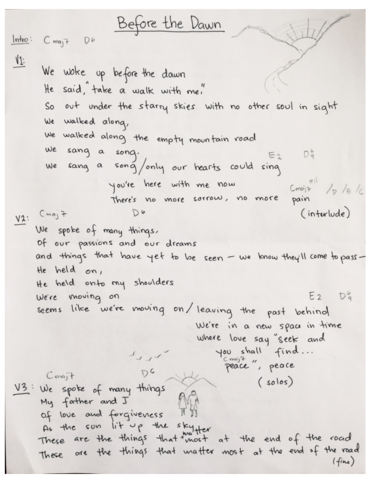 Before the Dawn
Intro: Cmaj7 D6
V1:
We woke up before the dawn
He said, "take a walk with me."
So out under the starry skies with no other soul in sight
We walked along,
We walked along the empty mountain road
We sang a song,
E2
We sang a song/only our hearts could sing
you're here with me now
Cmaj7 /D /B /C
There's no more sorrow, no more pain
(interlude)
V2: Cmaj7 D6
We spoke of many things,
Of our passions and our dreams
and things that have yet to be seen – we know they'll come to pass –
He held on,
He held onto my shoulders
We're moving on E2
Seems like we're moving on/leaving the past behind
We're in a new space in time
where love say "seek and
you shall find...
Cmaj7 D6 peace", peace
(solos)
V3: We spoke of many things
My father and I
Of love and forgiveness
As the sun lit up the sky
These are the things that matter most at the end of the road
These are the things that matter most at the end of the road
(fine)